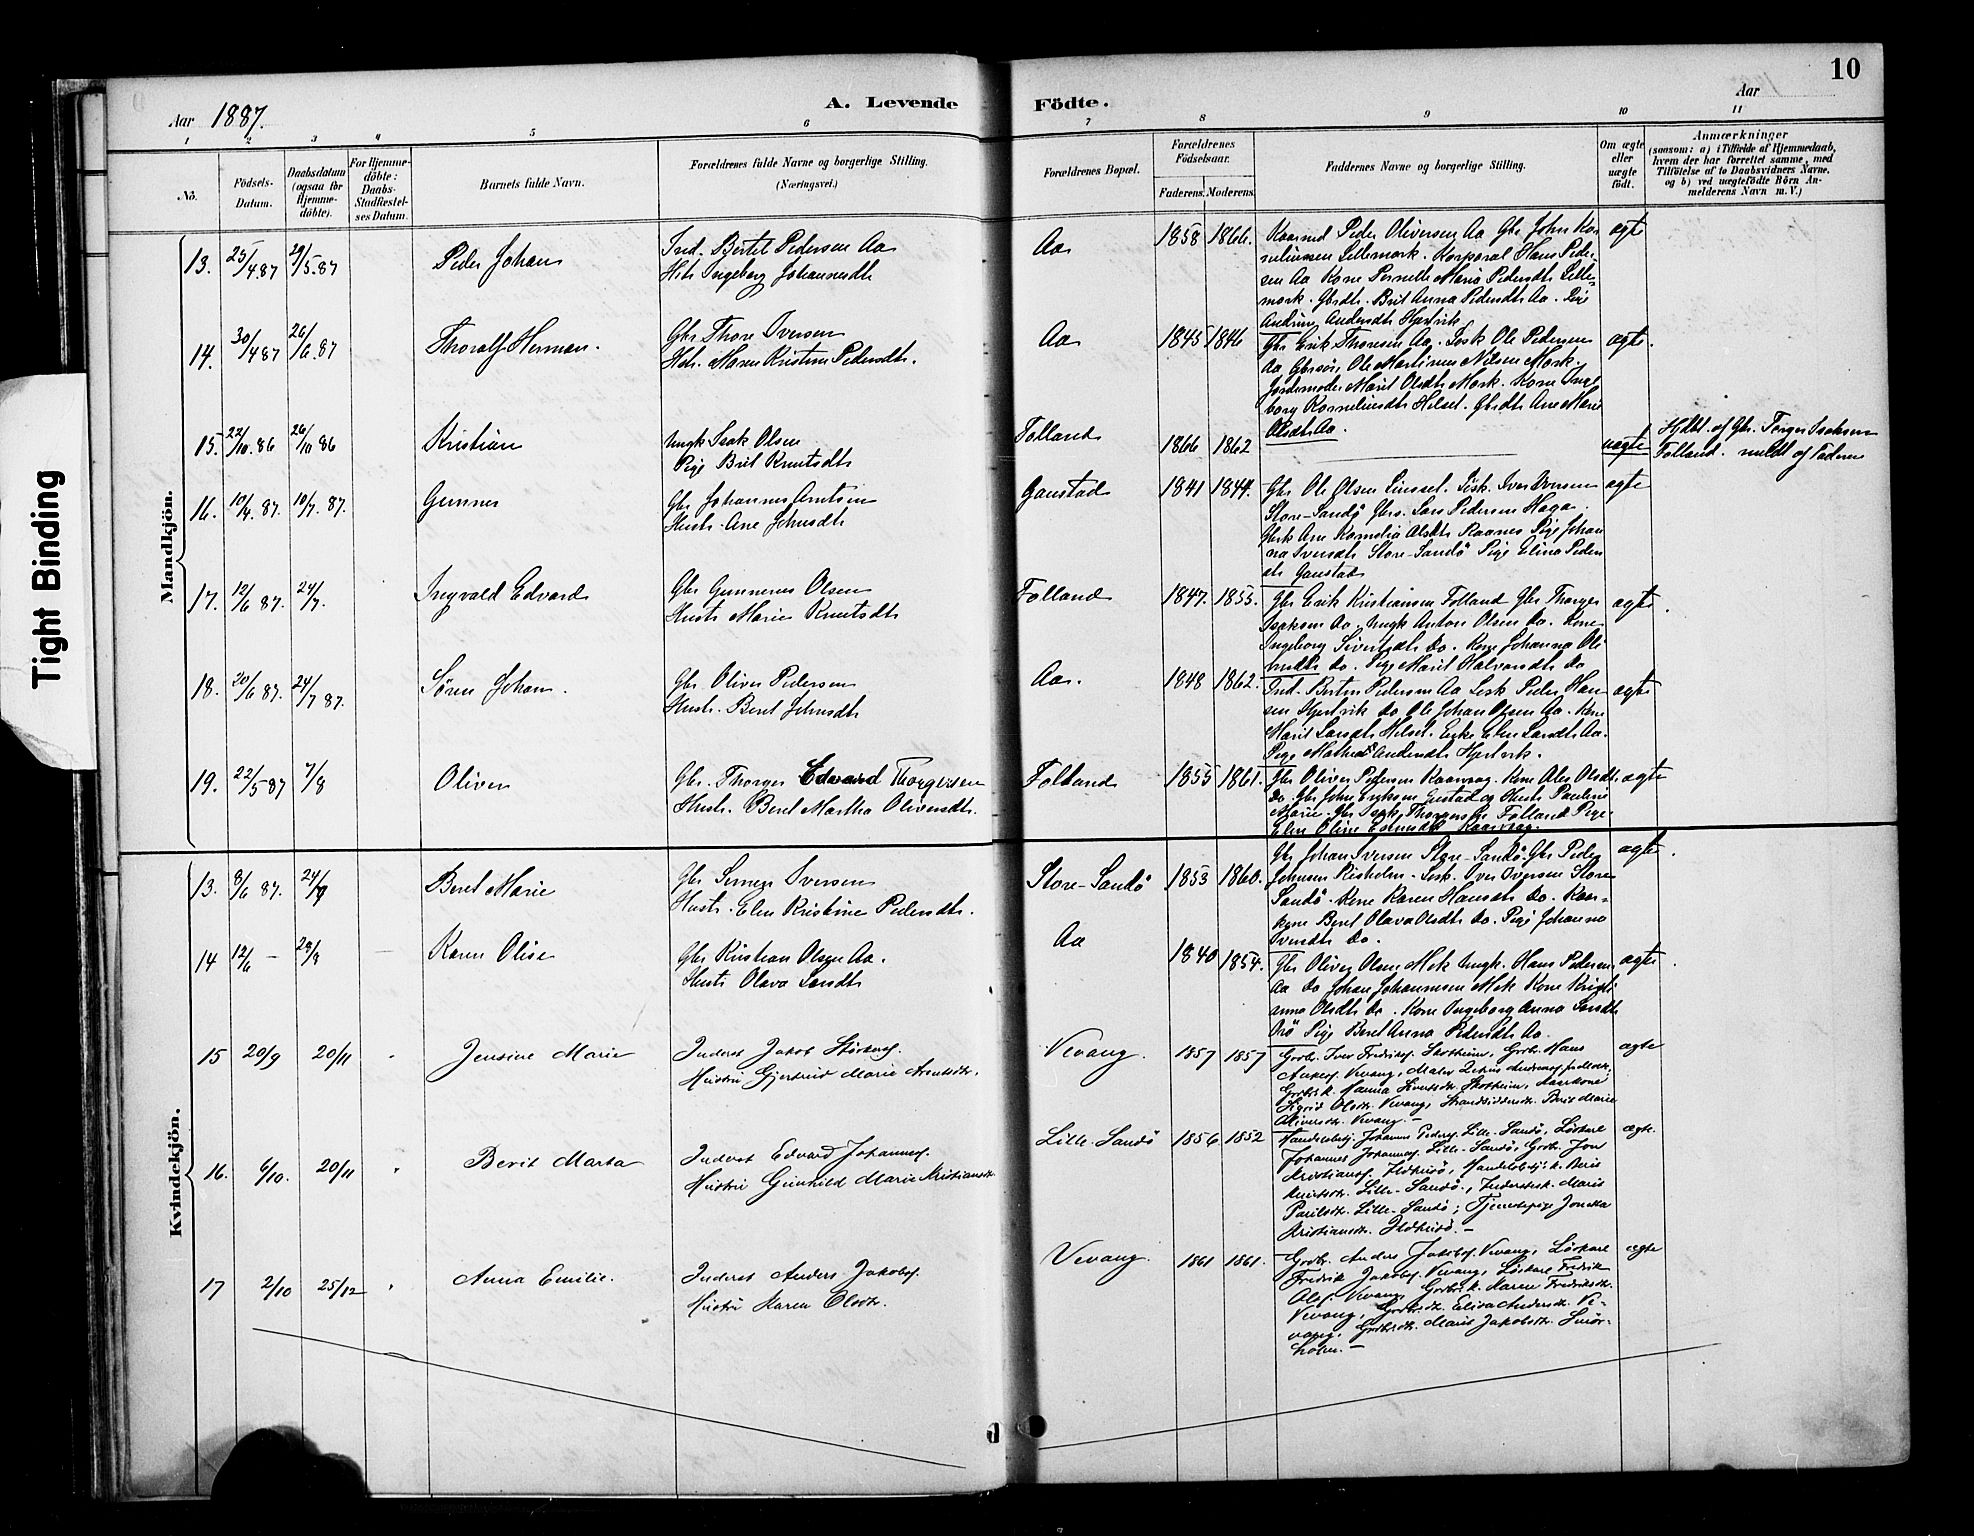 10
Aar 1887.
A. Levende Födte.
Aar
1 2 3 4 5 6 7 8 9 10 11
No.
Födsels-
Datum.
Daabsdatum
(ogsaa for
Hjemme-
döbte).
For Hjemme-
döbte:
Daabs-
Stadfæstel-
ses Datum.
Barnets fulde Navn.
Forældrenes fulde Navne og borgerlige Stilling.
(Næringsvei.)
Forældrenes Bopæl.
Forældrenes
Födselsaar.
Faderens. Moderens.
Faddernes Navne og borgerlige Stilling.
Om ægte
eller
uægte
födt.
Anmærkninger
(saasom: a) i Tilfælde af Hjemmedaab,
hvem der har forrettet samme, med
Tilföielse af to Daabsvidners Navne,
og b) ved uægtefödte Börn An-
melderens Navn m. V.)
Tight Binding
Mandkjön.
13. 25/4 87 29/5 87 Peder Johan
Ind. Bertel Pedersen Aa
Hstr Ingeborg Johannesdtr
Aa 1858 1866.
Kaarmd Peder Oliversen Aa Gbr John Kor
neliussen Lillemork. Korporal Hans Peder
sen Aa Kone Pernelle Maria Pedersdtr Lille-
mork. Gbrdtr. Brit Anna Pedersdtr Aa. Pige
Andrine Andersdtr Hjertvik
ægte
14. 30/4 87 26/6 87 Thoralf Herman.
Gbr Thore Iversen
Hstr. Maren Kristine Pedersdtr.
Aa 1845 1846
Gbr Erik Thoresen Aa. Losk Ole Pedersen
Aa Gbrsön Ole Martinus Nilsen Mork.
Jordemoder Marit Olsdtr Mork. Kone Inge
borg Korneliusdtr Helset. Gbrdtr Ane Marie
Olsdtr Aa.
ægte.
15. 22/10 86 26/10 86 Kristian
Ungk Isak Olsen
Pige Brit Knutsdtr
Folland 1866 1862
uægte
Hjdbt. af Gbr. Torger Isaksen
Folland. meldt af Faderen
16. 10/4. 87. 10/7. 87. Gunner
Gbr Johannes Arntsen
Hustr. Ane Johnsdtr
Gaustad 1841 1844.
Gbr Ole Olsen Linset. Losk. Iver Iversen
Store-Sandö Gbrs. Lars Pedersen Haga.
Ane Kornelia Olsdtr Raanes Pige Johan
na Iversdtr Store-Sandö Pige Elina Peders
dtr Gaustad
ægte
17. 12/6 87. 24/7. Ingvald Edvard
Gbr Gunnerus Olsen
Hustr Marie Knutsdtr
Folland 1847. 1853.
Gbr Erik Kristiansen Folland Gbr Thorger
Isaksen do. Ungk Anton Olsen do. Kone
Ingeborg Sivertsdtr do. Kone Johanna Oli
versdtr do. Pige Marit Halvorsdtr do
ægte.
18. 20/6 87. 24/7 87. Sören Johan.
Gbr. Oliver Pedersen
Hustr. Beret Johnsdtr
Aa. 1848 1862.
Ind. Bertin Pedersen Aa Losk Peder Han
sen Hjertvik do Ole Johan Olsen Aa. Kone
Marit Larsdtr Helset. Enke Elen Larsdtr Aa.
Pige Mathea Andersdtr Hjertvik.
ægte
19. 22/5 87 7/8 Oliver
Gbr. Thorger Edvard Thorgersen
Hustr. Beret Martha Oliversdtr.
Folland 1855 1861.
Gbr Oliver Pedersen Kaarvaag. Kone Ales Olsdtr
do. Gbr John Eriksen Gustad og Hustr Pauline
Marie. Gbr Isak Thorgersen Folland Pige
Elen Oline Kaarvaag.
ægte
Kvindekjön.
13. 8/6 87. 24/7 Beret Marie
Gbr Iversen
Hustr. Elen Kristine Pedersdtr.
Store-Sandö 1853 1860.
Gbr Johan Iversen Store-Sandö. Gbr Peder
Johnsen Risholm. Losk. Iver Iversen Store
Sandö. Kone Karen Hansdtr do. Kaar-
kone Beret Olava Olsdtr do. Pige Johanna
Iversdtr do.
ægte.
14 12/6 – 28/8 – Karen Olise
Gbr Kristian Olsen Aa.
Hustr Olava Larsdtr
Aa 1840 1854.
Gbr Oliver Olsen Mek Ungk. Hans Pedersen
Aa do Johan Johannesen Mek Kone Kristi
anna Olsdtr do. Kone Ingeborg Anna Larsdtr
Orö Pige Beret Anna Pedersdtr Aa.
ægte.
15 20/9 20/11 " Jensine Marie
Inderst Jakob Störkers.
Hustru Gjertrud Marie Arentsdtr.
Vevang. 1857 1857
Gbr. Iver Fredriks. Skotheim, Grbr. Hans
Anders. Vevang, Maler
Hanna Sivertsdtr. Skotheim, Kaarkone
Sigrid Olsdtr. Vevang, Strandsidderdtr. Berit Marie
Oliversdtr. Vevang.–
ægte
16. 6/10. 20/11 " Berit Marta
Inderst Edvard Johannes.
Hustru Gunhild Marie Kristiansdtr.
Lille-Sandö 1856 1852
Handelsbetj. Johannes Peders. Lille-Sandö, Löskarl
Johannes Johannes. Lille-Sandö, Grbr. Jon
Kristians. Ildhusö, Handelsbetj.k. Beris
Knutsdtr. Lille-Sandö, Inderstk. Marit
Paulsdtr. Lille-Sandö; Tjenestepige Jonetta
Kristiansdtr. Ildhusö.–
ægte.
17 2/10 25/12 " Anna Emilie.
Inderst Anders Jakobs.
Hustru Karen Olsdtr.
Vevang. 1861 1861.
Grdbr. Anders Jakobs. Vevang, Löskarl
Fredrik Jakobs. Vevang, Löskarl Fredrik
Ols. Vevang, Grdbr.k. Maren Fredriksdtr.
Vevang, Grdbrdtr. Elisa Andersdtr. Ve-
vang, Grdbrdtr. Marit Jakobsdtr. Smör-
holm.–
ægte